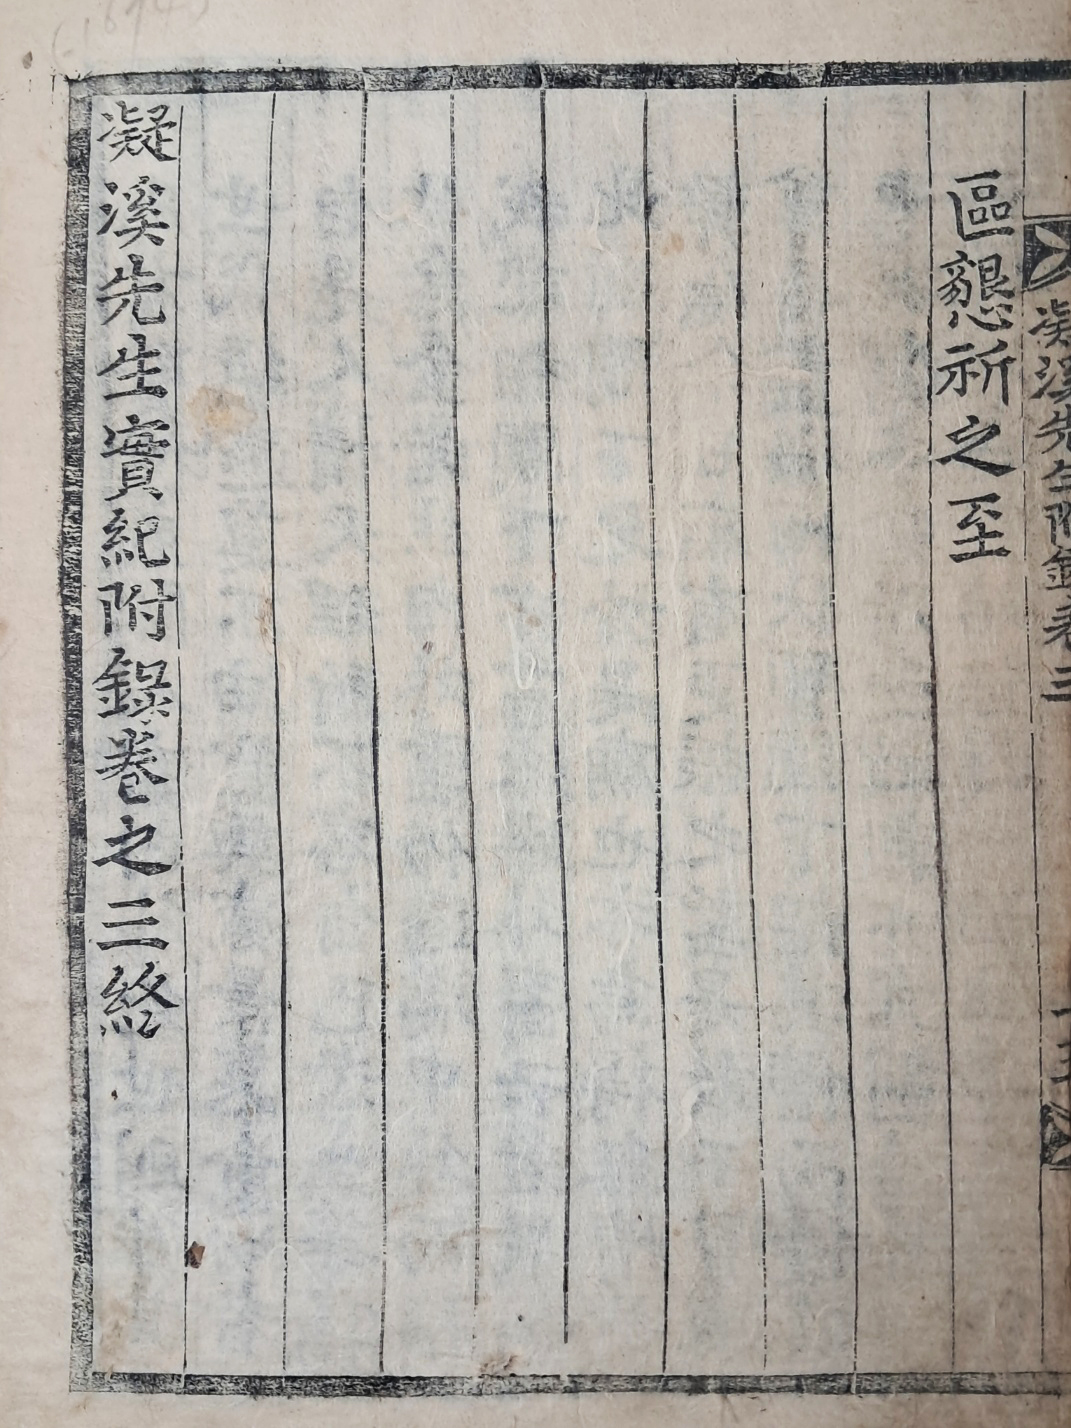 凝溪先生附錄卷三
區懇祈之至
凝溪先生實紀附錄卷之三終